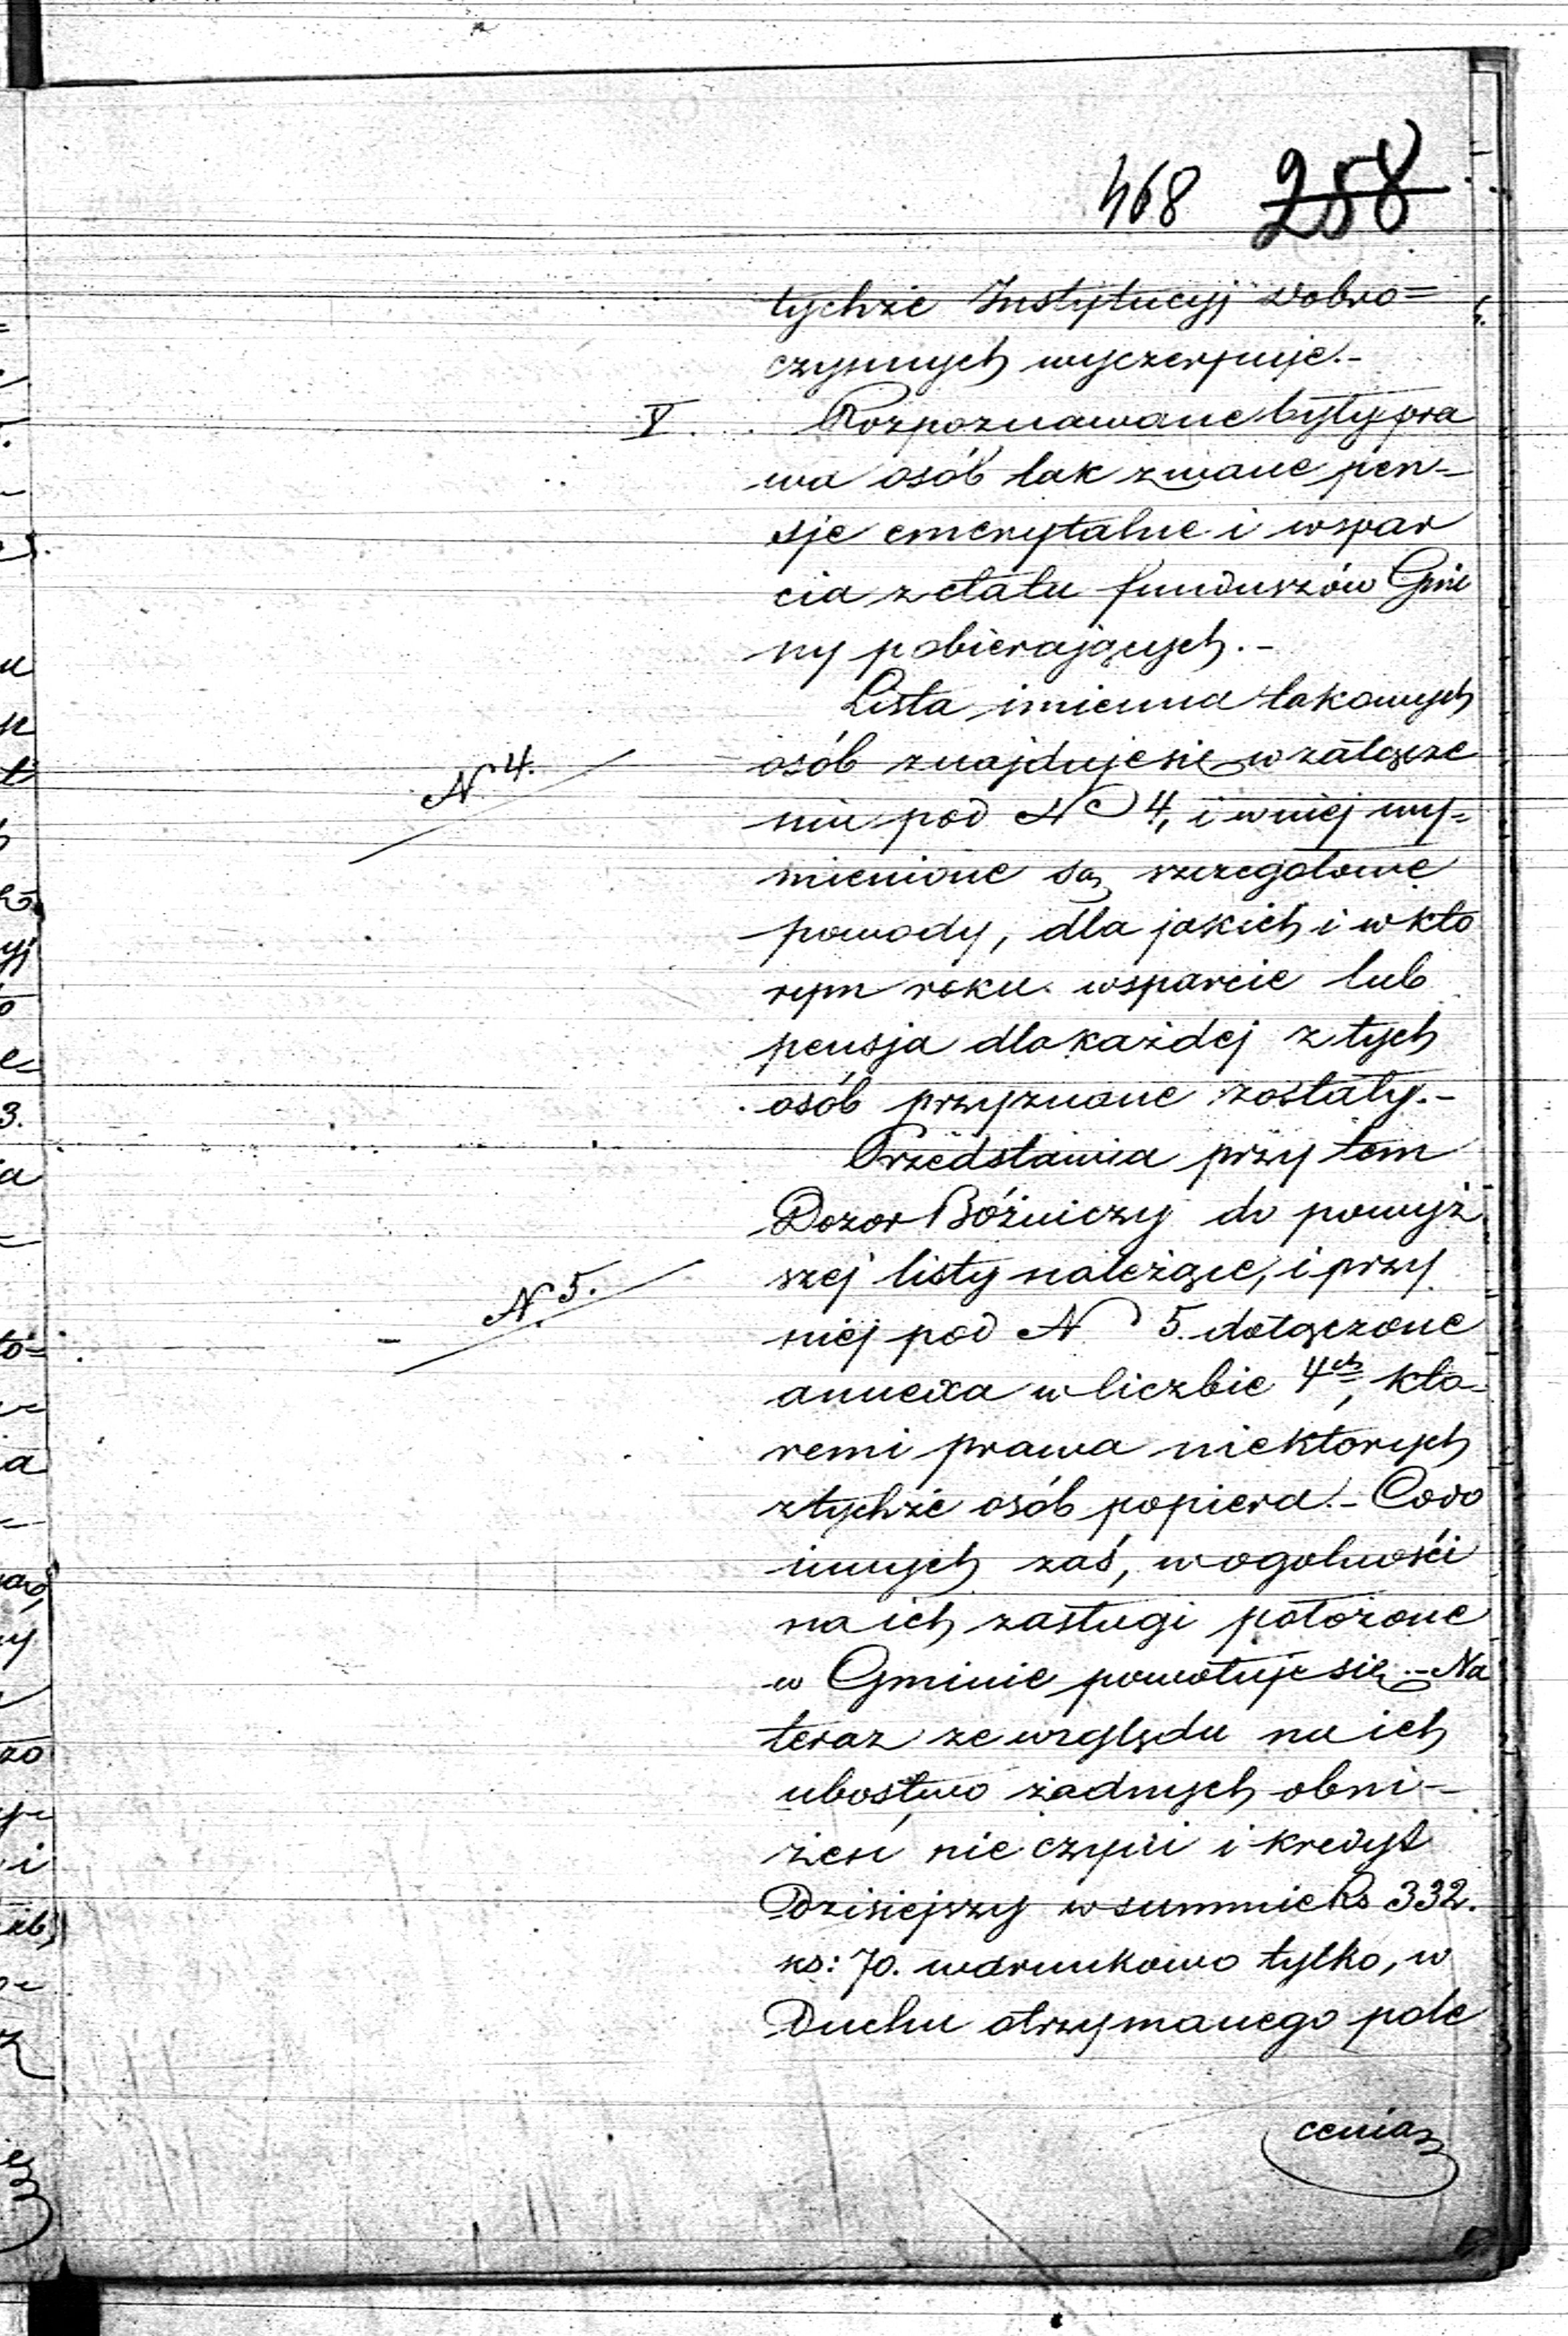 468 258
tychże Instytucyj dobro=
czynnych wyczerpuje.-
V. Rozpoznawane były pra
wa osób tak zwane pen-
sje emerytalne i wspar
cia z etatu funduszów Gmi
ny pobierających.-
Lista imienna takowych
osób znajduje się w załącze
N 4.
niu pod N 4, i w niej wy=
mienione są szczegołowe
powody, dla jakich i w kto
rym roku wsparcie lub
pensja dla każdej z tych
osób przyznane zostały.-
Przedstawia przy tem
Dozor Bóźniczy do powyż
szej listy należące, i przy
N 5.
niej pod N 5. dołączone
annexa w liczbie 4ch, kto-
remi prawa niektorych
z tychże osób popiera.- Co do
innych zaś, w ogolności
na ich zasługi położone
w Gminie powołuje się.- Na
teraz ze względu na ich
ubóstwo żadnych obni-
żeń nie czyni i kredyt
Dzisiejszy w summie Rs 332.
ks: 70. warunkowo tylko, w
Duchu otrzymanego pole
cenia